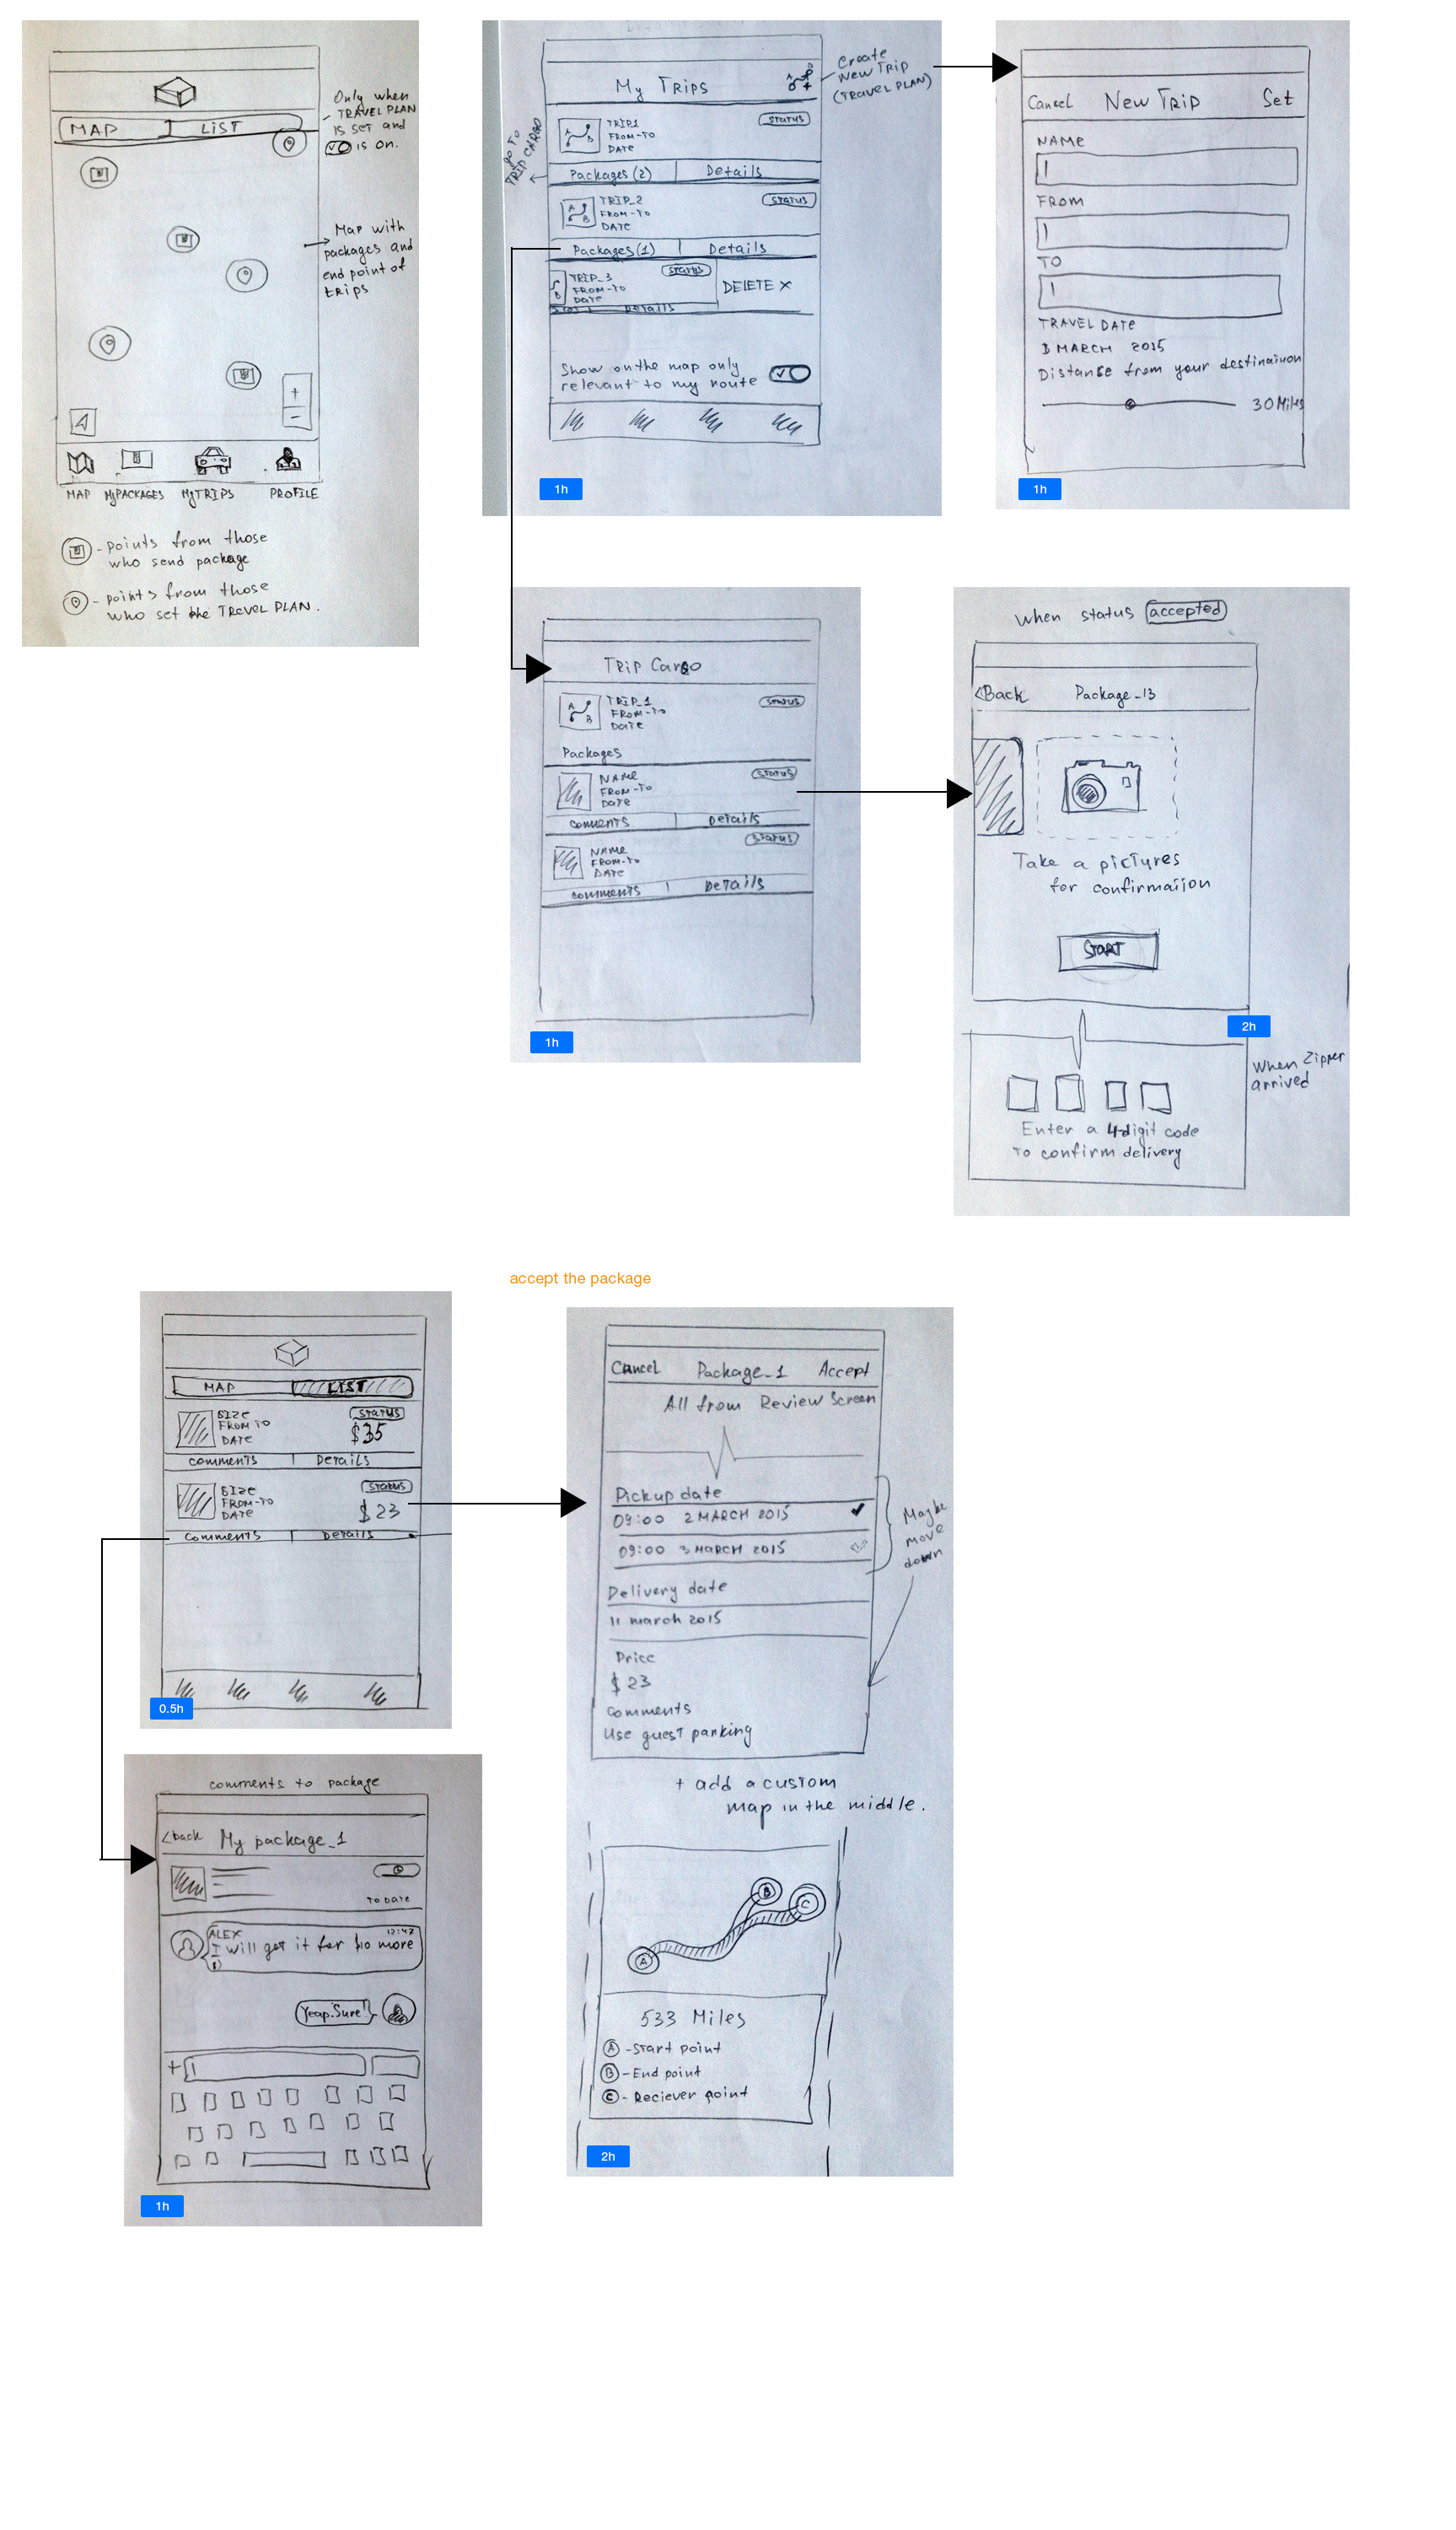 MAP
LIST
Only when
TRAVEL PLAN
is set and
is on.
Map with
packages and
end point of
trips
MAP
MyPACKAGES
MyTRIPS
PROFILE
- points from those
who send package
- points from those
who set the TREVEL PLAN.
My TRiPS
Create
New Trip
(TRAVEL PLAN)
go to
TRiP CARGO
TRiP1
FROM-TO
DATE
STATUS
Packages (2)
Details
TRiP_2
FROM-TO
DATE
STATUS
Packages (1)
Details
TRiP_3
FROM-TO
Date
STATUS
DELETE X
Details
Show on the map only
relevant to my route
1h
Cancel
New Trip
Set
NAME
FROM
TO
TRAVEL DATE
3 MARCH 2015
Distanse from your destinaiuon
30 Miles
1h
Trip Cargo
TRiP_1
FROM-TO
Date
STATUS
Packages
NAME
FROM-TO
Date
STATUS
comments
Details
NAME
FROM-TO
DATE
STATUS
comments
Details
1h
When status accepted
<Back
Package_13
Take a pictures
for confirmaiion
START
2h
When Zipper
arrived
Enter a 4-digit code
To confirm delivery
accept the package
MAP
LIST
SIZE
FROM TO
DATE
STATUS
$35
comments
Details
SIZE
FROM-TO
DATE
STATUS
$23
Comments
Details
0.5h
Cancel
Package_1
Accept
All from Review Screen
Pickup date
09:00 2 MARCH 2015
09:00 3 MARCH 2015
Maybe
move
down
Delivery date
11 march 2015
Price
$23
Comments
Use guest parking
+ add a custom
map in the middle.
A
B
C
533 Miles
A - Start point
B - End point
C - Reciever point
2h
comments to package
<back
My package_1
TO Date
ALEX
12:42
I will get it for $10 more
:)
Yeap. Sure!
+
1h